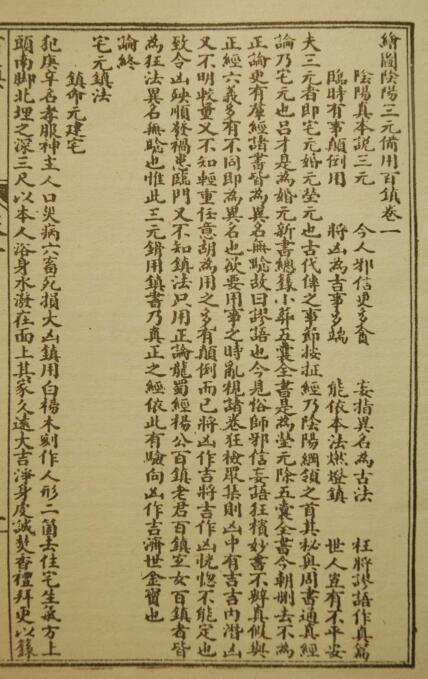 繪圖陰陽三元備用百鎮卷一
陰陽真本說三元　今人邪信更多貪　妄指異名為古法　枉將謬語作真篇
臨時有事顛倒用　將凶為吉事多端　能依本法燃燈鎮　世人豈有不平安
夫三元者即宅元婚元塋元也古代傳之事節按証經乃陰陽綱領之首其秘與周書通真經
論乃宅元也呂才是為婚元新書總錄小葬五囊全書是為塋元除五囊全書今朝刪去不為
正論更有羣經諸書皆為異名無騐故曰謬語也今見俗師邪信妄語狂積妙書不辨真假與
正經六義多有不同即為異名也欲要用事之時亂視諸卷狂檢眾集則凶中有吉吉內潛凶
又不明較量又不知輕重任意胡為用之多有顛倒而已將凶作吉將吉作凶恍惚不能定也
致令凶殃順發禍患臨門又不知鎮法只用正論龍蜀經楊公百鎮老君百鎮玄女百鎮者皆
為狂法異名無騐也惟此三元鎮用鎮書乃真正之經依此有驗向凶作吉濟世金寶也
論終
宅元鎮法
鎮命元建宅
犯庚年名孝服神主人口災病六畜死損大凶鎮用白楊木刻作人形二箇去住宅生氣方上
頭南脚北埋之深三尺以本人浴身水潑在面上其家久遠大吉淨身虔誠焚香禮拜更以籙